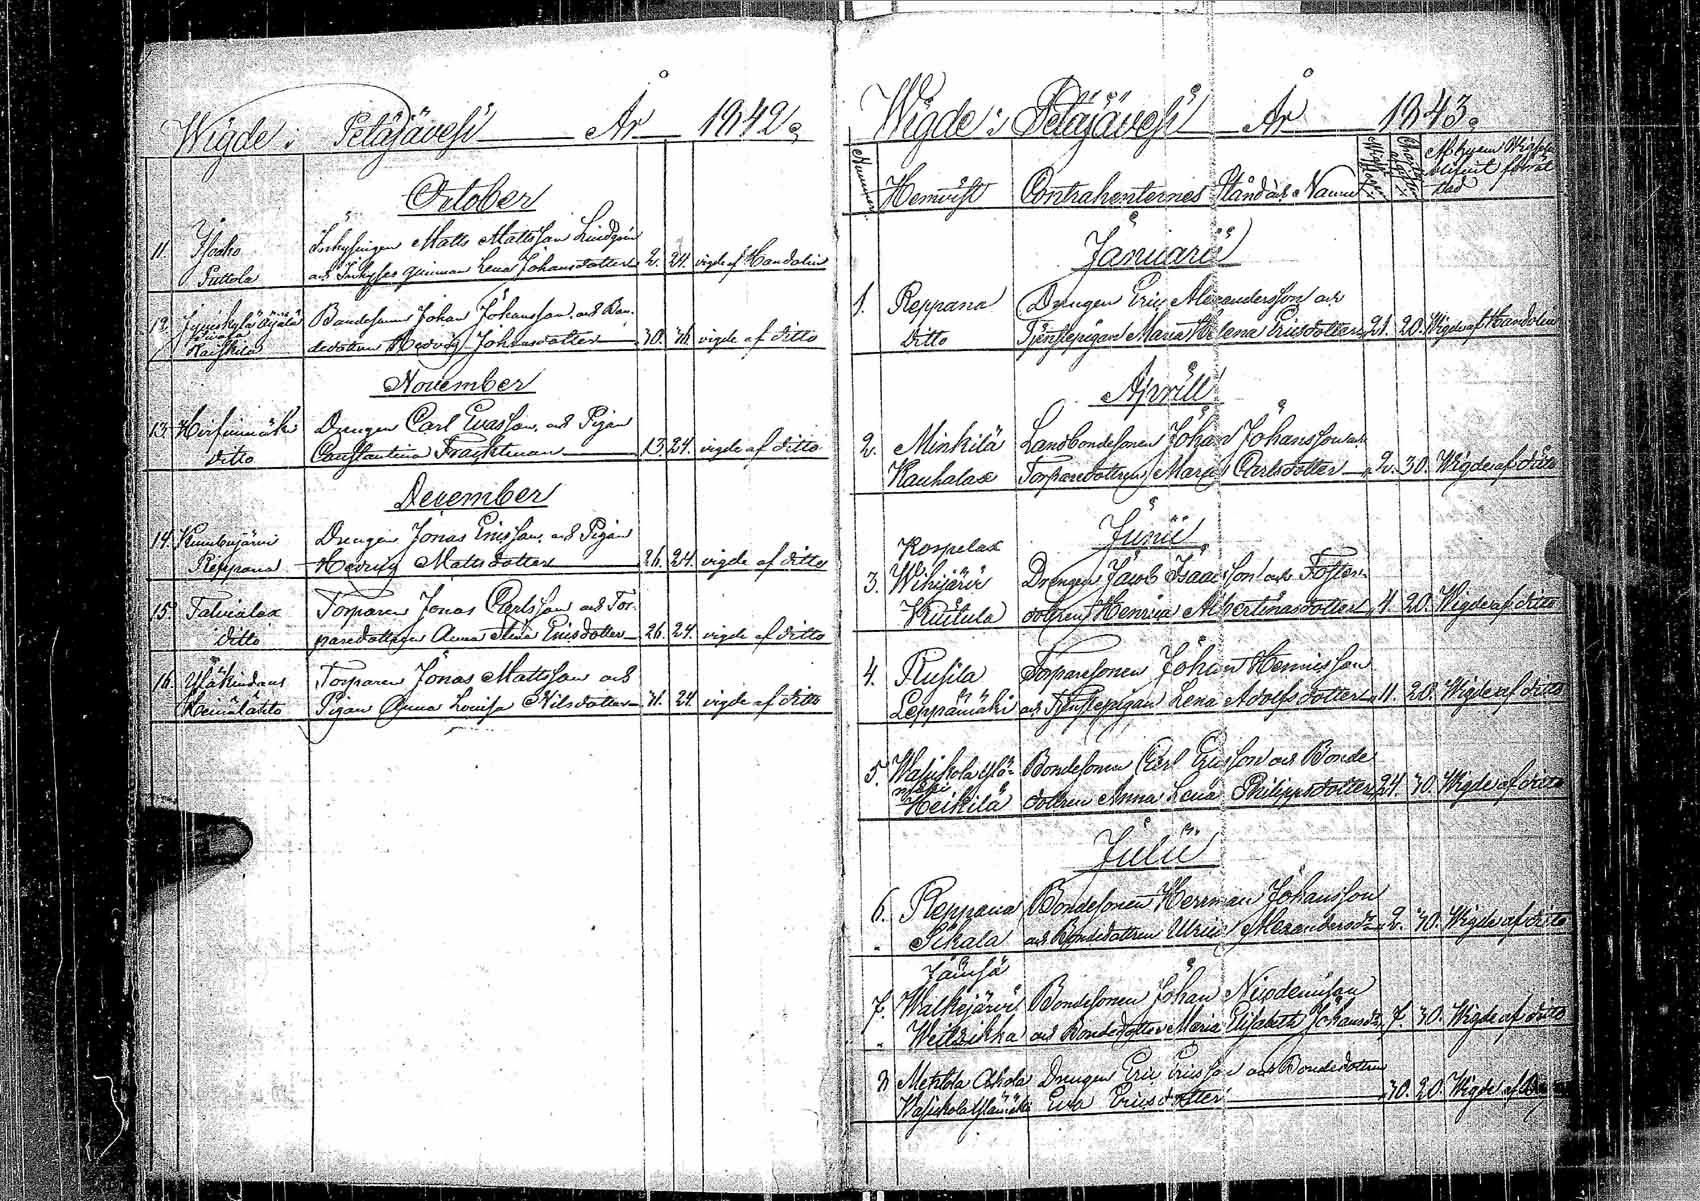 Wigde: Petäjävesi År 1842.
October
11. Isoaho Matts Mattsson Lindqvist
Puttola och Inhyses qvinnan Lena Johansdotter 2. 24. vigde af Handolin
12. Bondesonen Johan Johansson, och Bon-
Raiskila dedottren Hedvig Johansdotter 30. vigde af ditto
November
13. Drengen Carl Evasson, och Pigan
ditto Constantina 13. 24. vigde af ditto
December
14. Drengen Jonas Ericsson, och Pigan
Reppana Hedvig Mattsdotter 26. 24. vigde af ditto
15. Talvialax Torparen Jonas Carlsson och Tor-
ditto paredottren Anna Stina Ericsdotter 26. 24. vigde af ditto
16. Torparen Jonas Mattsson och
Heinälahto Pigan Anna Lovisa Nilsdotter 31. 24. vigde af ditto
Wigde: Petäjävesi År 1843.
Nummer Hemvist Contrahenternes Stånd och Namn
Januarii
1. Reppana Drengen Eric Alexandersson och
ditto Tjenstepigan Maria Helena Ericsdotter 21. 20. Wigde af Handolin
Aprill
2. Minkilä Landbondesonen Johan Johansson och
Kauhalax Torparedottren Maria Carlsdotter 2. 30. Wigde af ditto
Junii
Korpelax
3. Wihijärvi Drengen Jacob Isaacsson och Foster-
Kuitula dottren Henrica Albertinasdotter 4. 20. Wigde af ditto
4. Rusila Torparesonen Johan Henricsson
Leppämäki och Tjenstepigan Lena Adolfsdotter 11. 20. Wigde af ditto
5. Wasiskola Ylä- Bondesonen Carl Ericsson och Bonde
mäki
Heikilä dottren Anna Lena Philippsdotter 24. 30. Wigde af ditto
Julii
6. Reppana Bondesonen Herrman Johansson
Pikala och Bondedottren Ulrica Alexandersdr 2. 30. Wigde af ditto
Jämsä
7. Walkejärvi Bondesonen Johan Nicodemusson
Weitsikka och Bondedotter Maria Elisabeth Johansdr 7. 30. Wigde af ditto
8 Metstola Ahola Drengen Eric Ericsson och Bondedottren
Wasiskola Ylämäki Eva Ericsdotter 30. 20. Wigde af